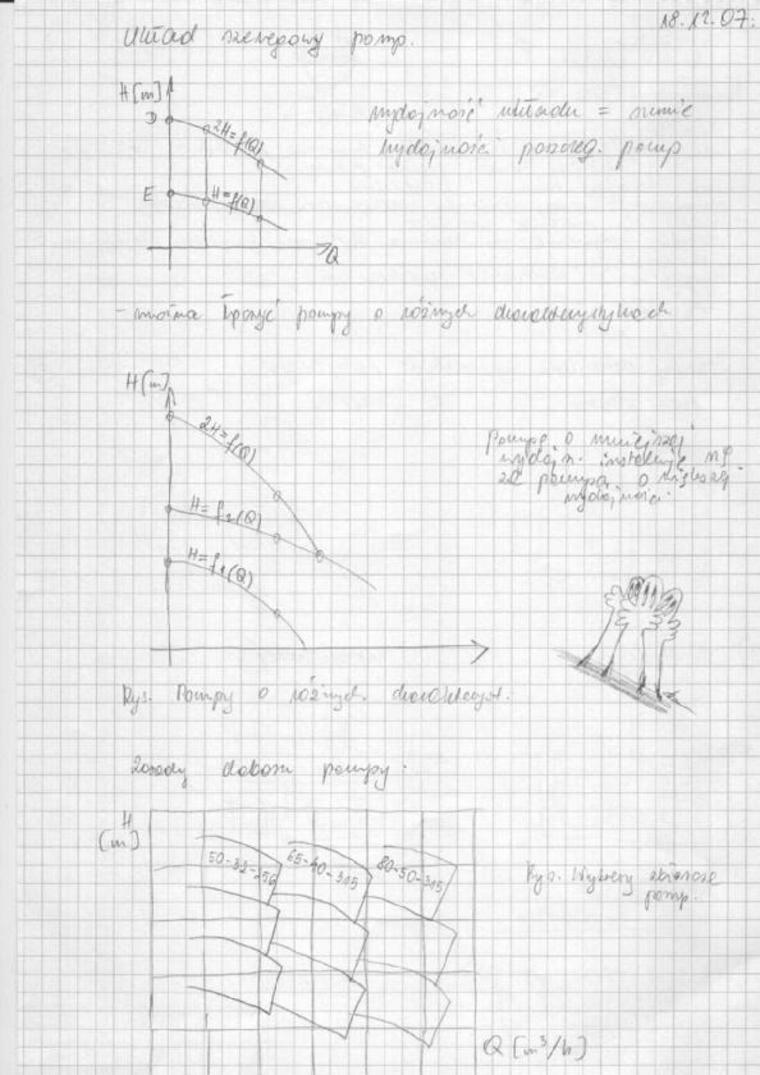 18.12.07.
Układ szeregowy pomp.
H[m]
D
2H=f(Q)
E
H=f(Q)
Q
wydajność układu = sumie
wydajności poszczeg. pomp
- można łączyć pompy o różnych charakterystykach
H[m]
2H=f(Q)
H=f2(Q)
H=f1(Q)
Pompę o mniejszej
wydajn. instaluje się
za pompą o większej
wydajności.
Rys. Pompy o różnych charakteryst.
Zasady doboru pompy.
H
[m]
50-32-256
65-40-315
80-50-315
Rys. Wykresy zbiorcze
pomp.
Q [m³/h]